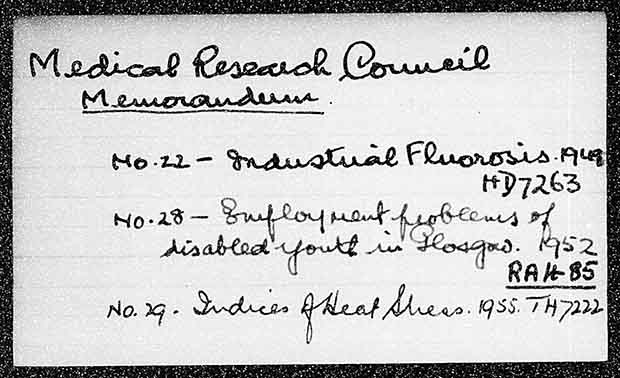 Medical Research Council
Memorandum.
No. 22 – Industrial Fluorosis. 1948
HD7263
No. 28 – Employment problems of
disabled youth in Glasgow. 1952
RA485
No. 29. Indices of Heat Stress. 1955. TH7222